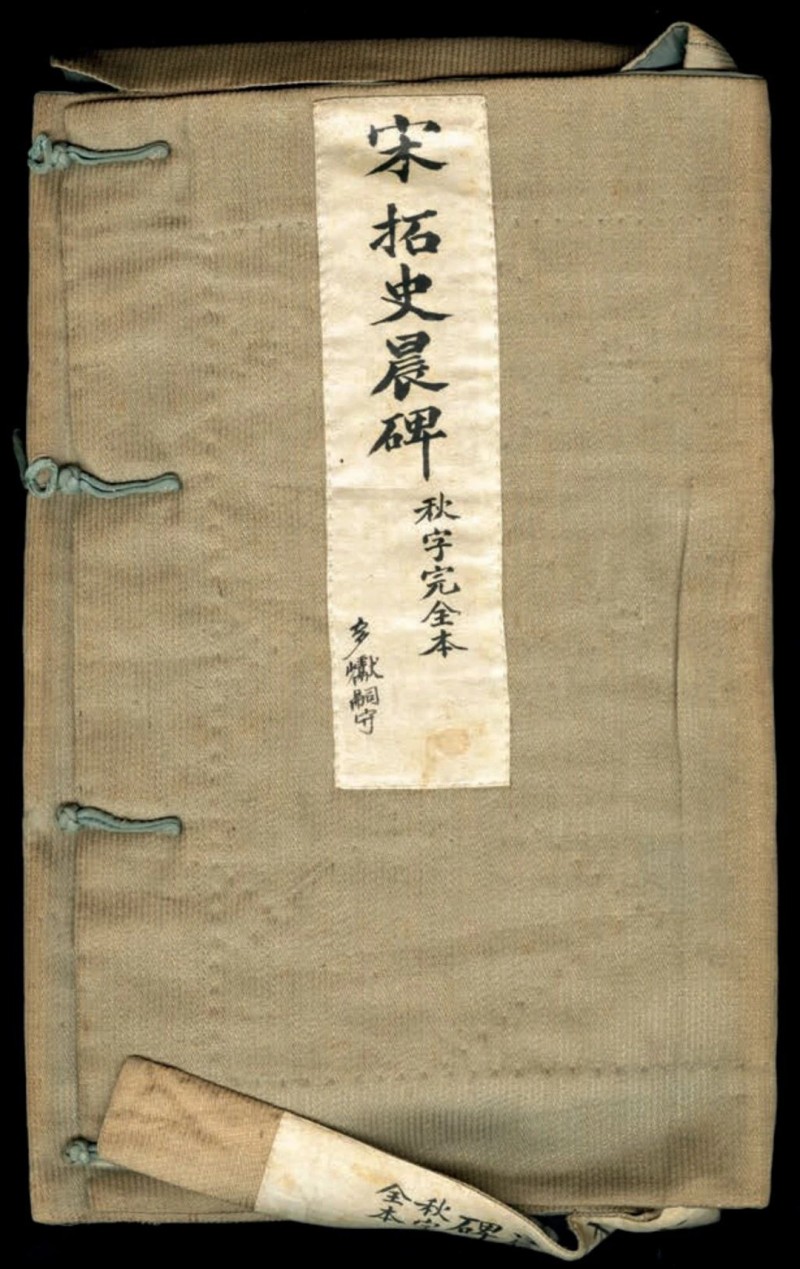 宋拓史晨碑
秋字完全本
多㺊嗣守
碑
秋字
全本